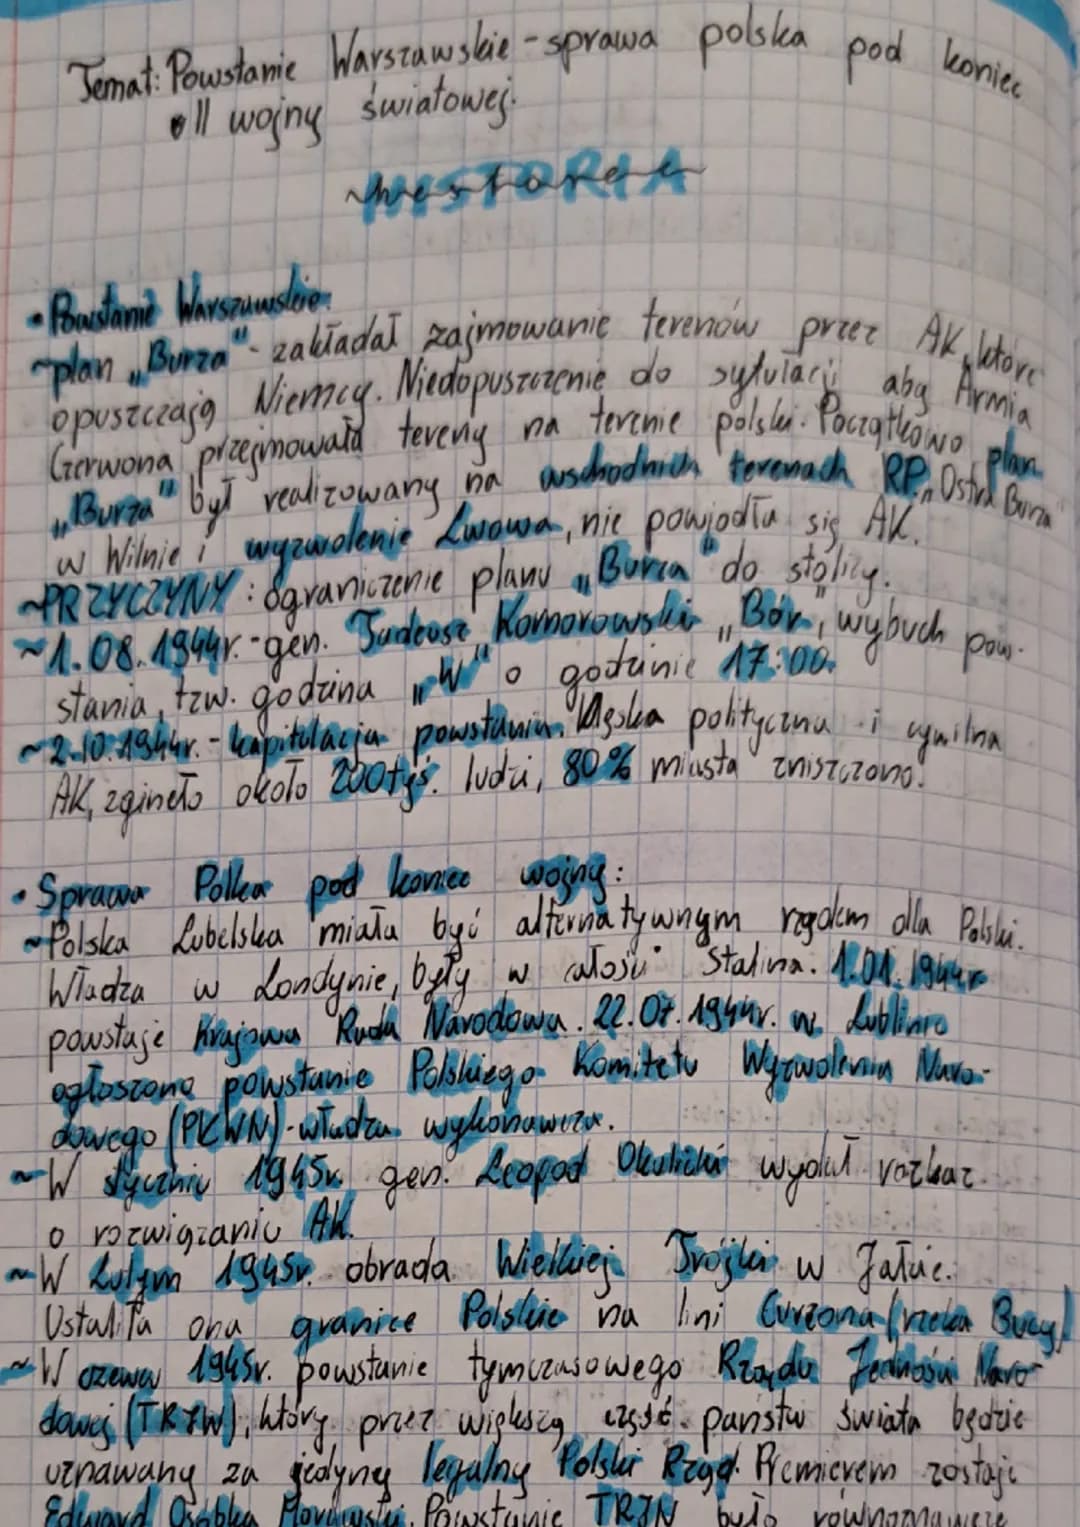 Temat: Powstanie Warszawskie - sprawa polska pod koniec
II wojny światowej.
HISTORIA
• Powstanie Warszawskie:
~plan „Burza" - zakładał zajmowanie terenów przez AK, które
opuszczają Niemcy. Niedopuszczenie do sytulacji aby Armia
Czerwona przejmowała tereny na terenie polski. Początkowo plan
„Burza" był realizowany na wschodnich terenach RP. „Ostra Burza
w Wilnie i wyzwolenie Lwowa, nie powiodła się AK.
~PRZYCZYNY: ograniczenie planu „Burza" do stolicy.
~1.08.1944r. - gen. Tadeusz Komorowski „Bór", wybuch pow-
stania, tzw. godzina „W" o godzinie 17:00.
~2.10.1944r. - kapitulacja powstania. Klęska polityczna i cywilna
AK, zgineło około 200tyś. ludzi, 80% miasta zniszczono.
• Sprawa Polka pod koniec wojny:
~Polska Lubelska miała być alternatywnym rządem dla Polski.
Władza w Londynie, były w całości Stalina. 1.01.1944r
powstaje Krajowa Rada Narodowa. 22.07.1944r. w Lublinie
ogłoszono powstanie Polskiego Komitetu Wyzwolenia Naro-
dowego (PKWN) - władza wykonawcza.
~W styczniu 1945r. gen. Leopod Okulicki wydał rozkaz
o rozwiązaniu AK.
~W Lutym 1945r. obrada Wielkiej Trójki w Jałcie.
Ustaliła ona granice Polskie na lini Curzona (rzeka Bug)
~W czewcu 1945r. powstanie tymczasowego Rządu Jedności Naro
dowej (TRJN), który przez większą część państw świata będzie
uznawany za jedyny legalny Polski Rząd. Premierem zostaje
Edward Osóbka Morawski. Powstanie TRJN było równoznaczne